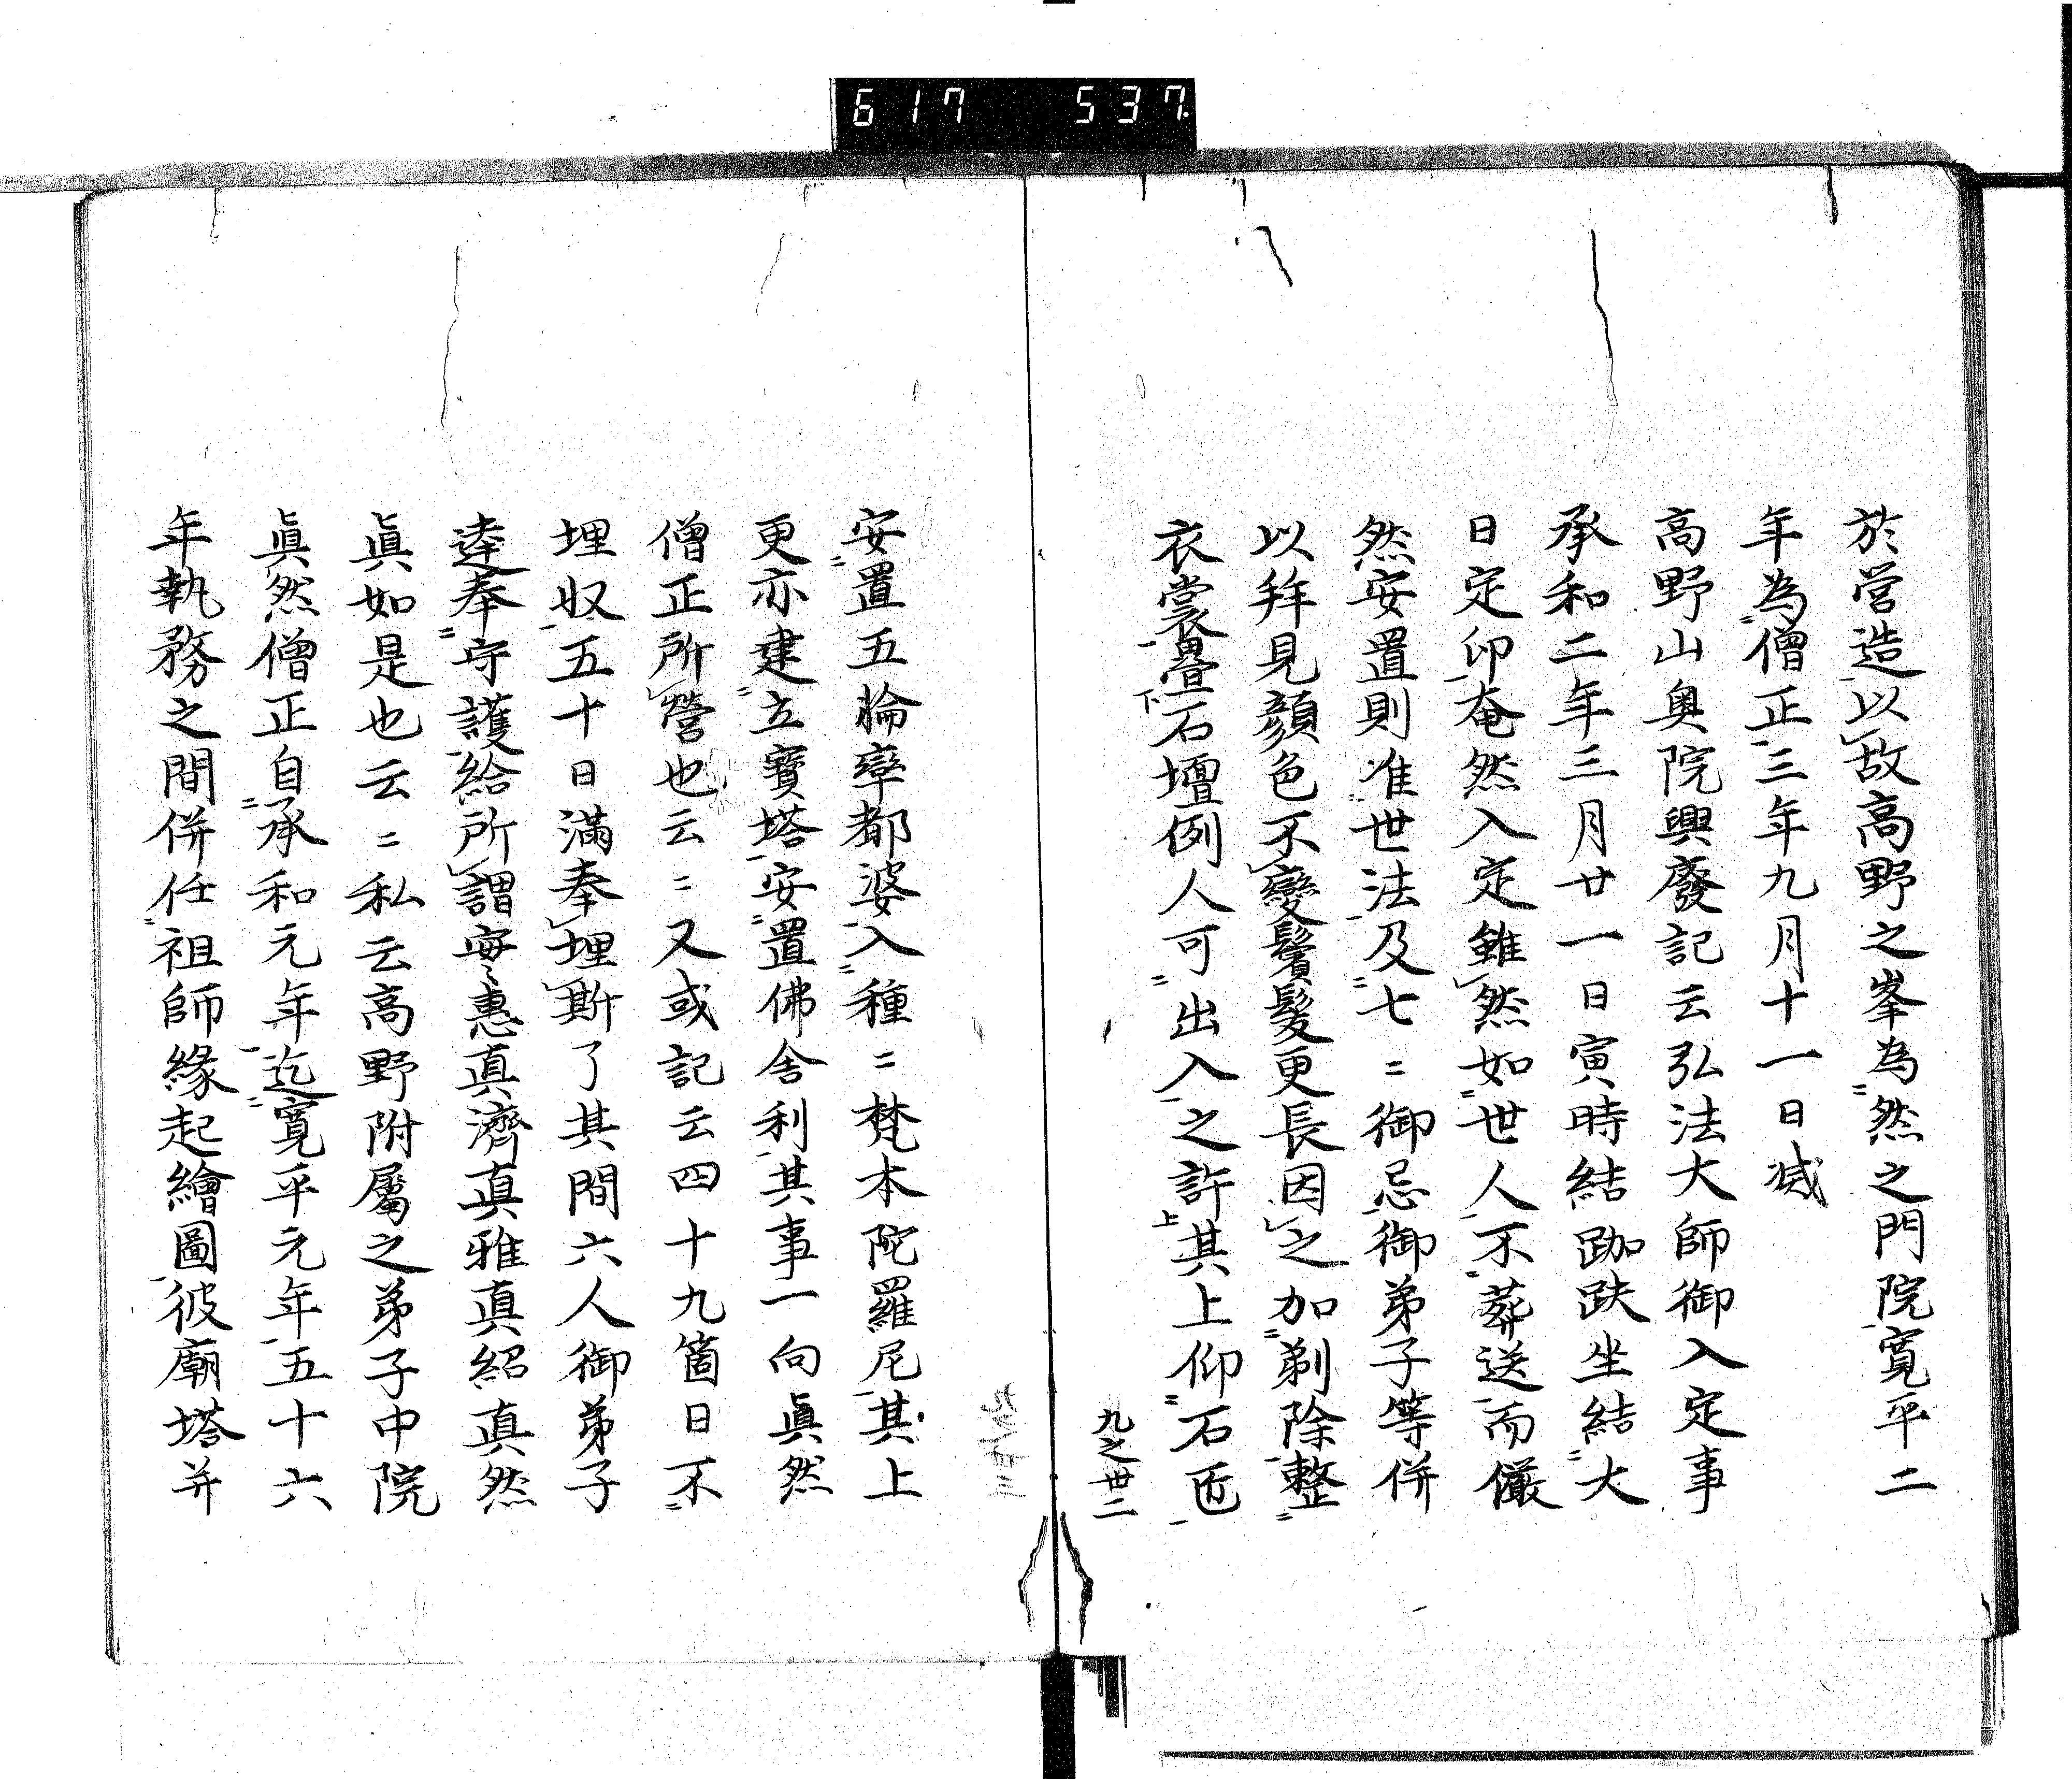 617 537.
於営造以故高野之峯為然之門院寛平二
年為僧正三年九月十一日滅
高野山奥院興廢記云弘法大師御入定事
承和二年三月廿一日寅時結跏趺坐結大
日定印奄然入定雖然如世人不葬送而儼
然安置則准世法及七〻御忌御弟子等併
以拜見顔色不變鬢髪更長因之加剃除整
衣裳疊石壇例人可出入之許其上仰石匠
九之卅二
安置五輪率都婆入種〻梵本陀羅尼其上
更亦建立寳塔安置佛舎利其事一向眞然
僧正所營也云〻又或記云四十九箇日不
埋奴五十日満奉埋斯了其間六人御弟子
逵奉守護給所謂実恵真濟真雅真紹真然
眞如是也云〻私云高野附屬之弟子中院
眞然僧正自承和元年迄寛平元年五十六
年執務之間併任祖師縁起繪圖彼廟塔并